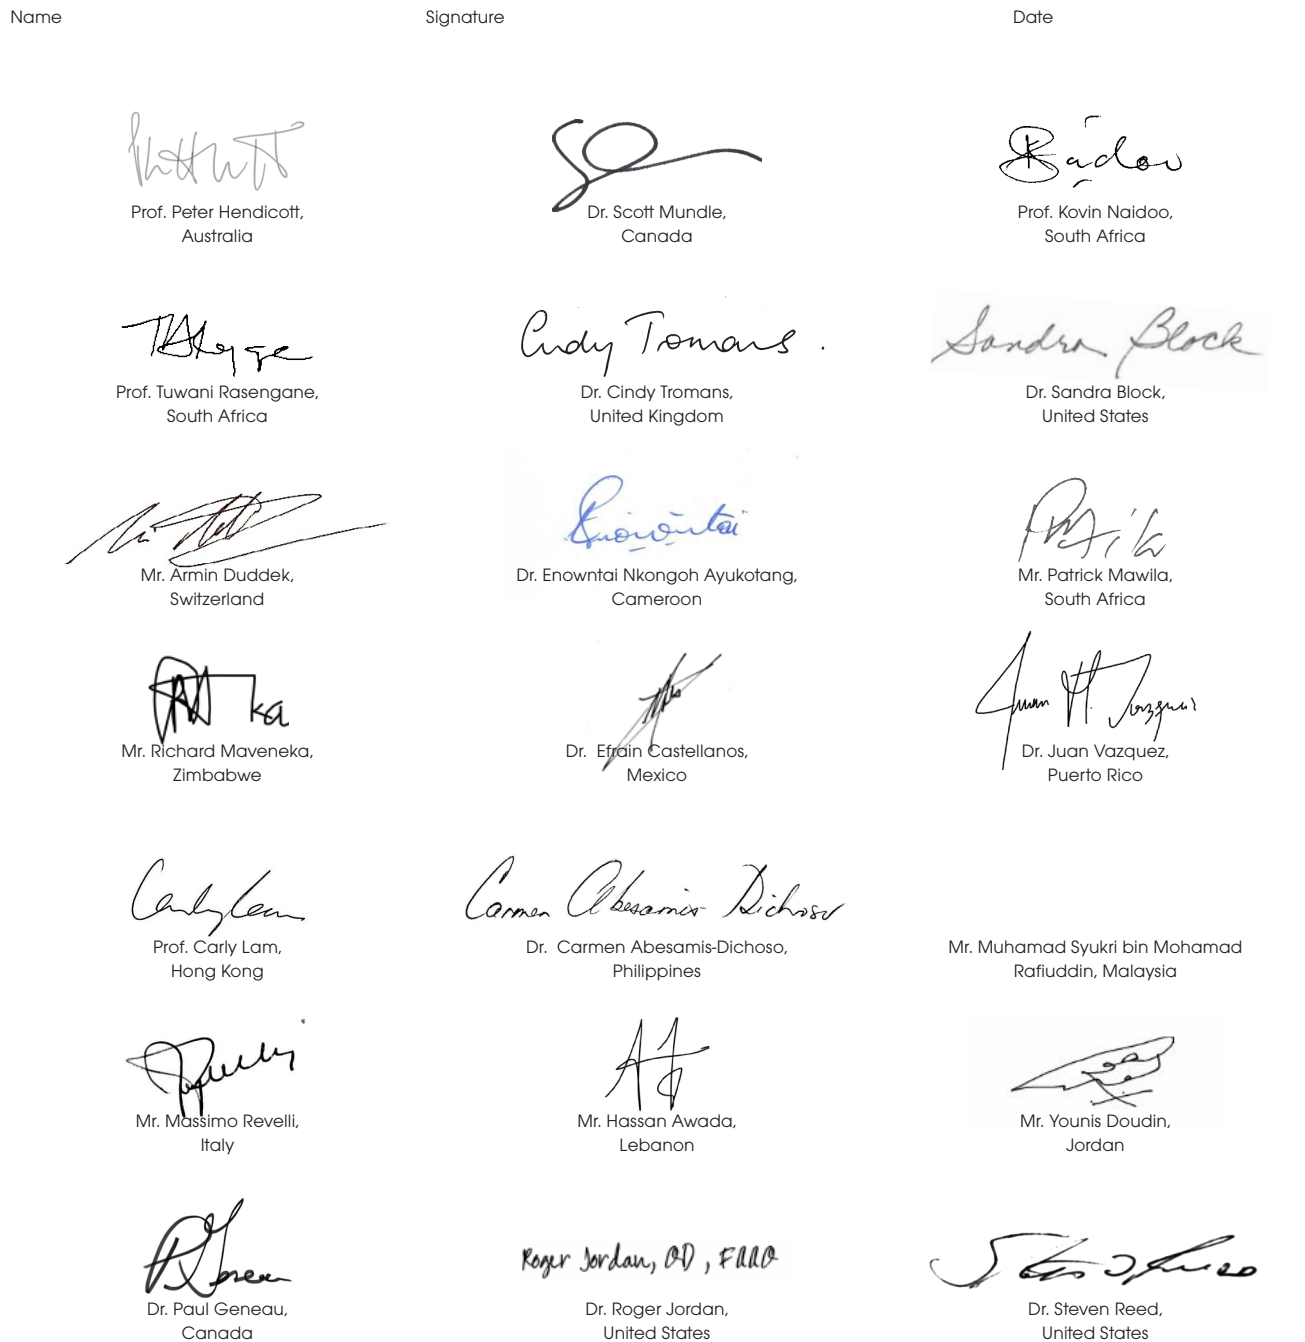 Name Signature Date
Prof. Peter Hendicott,
Australia
Dr. Scott Mundle,
Canada
Prof. Kovin Naidoo,
South Africa
Cindy Tromans .
Sandra Block
Prof. Tuwani Rasengane,
South Africa
Dr. Cindy Tromans,
United Kingdom
Dr. Sandra Block,
United States
Mr. Armin Duddek,
Switzerland
Dr. Enowntai Nkongoh Ayukotang,
Cameroon
Mr. Patrick Mawila,
South Africa
Mr. Richard Maveneka,
Zimbabwe
Dr. Efrain Castellanos,
Mexico
Juan M. Vazquez
Dr. Juan Vazquez,
Puerto Rico
Carly Lam
Carmen Abesamis Dichoso
Prof. Carly Lam,
Hong Kong
Dr. Carmen Abesamis-Dichoso,
Philippines
Mr. Muhamad Syukri bin Mohamad
Rafiuddin, Malaysia
Mr. Massimo Revelli,
Italy
Mr. Hassan Awada,
Lebanon
Mr. Younis Doudin,
Jordan
Roger Jordan, OD, FAAO
Dr. Paul Geneau,
Canada
Dr. Roger Jordan,
United States
Dr. Steven Reed,
United States